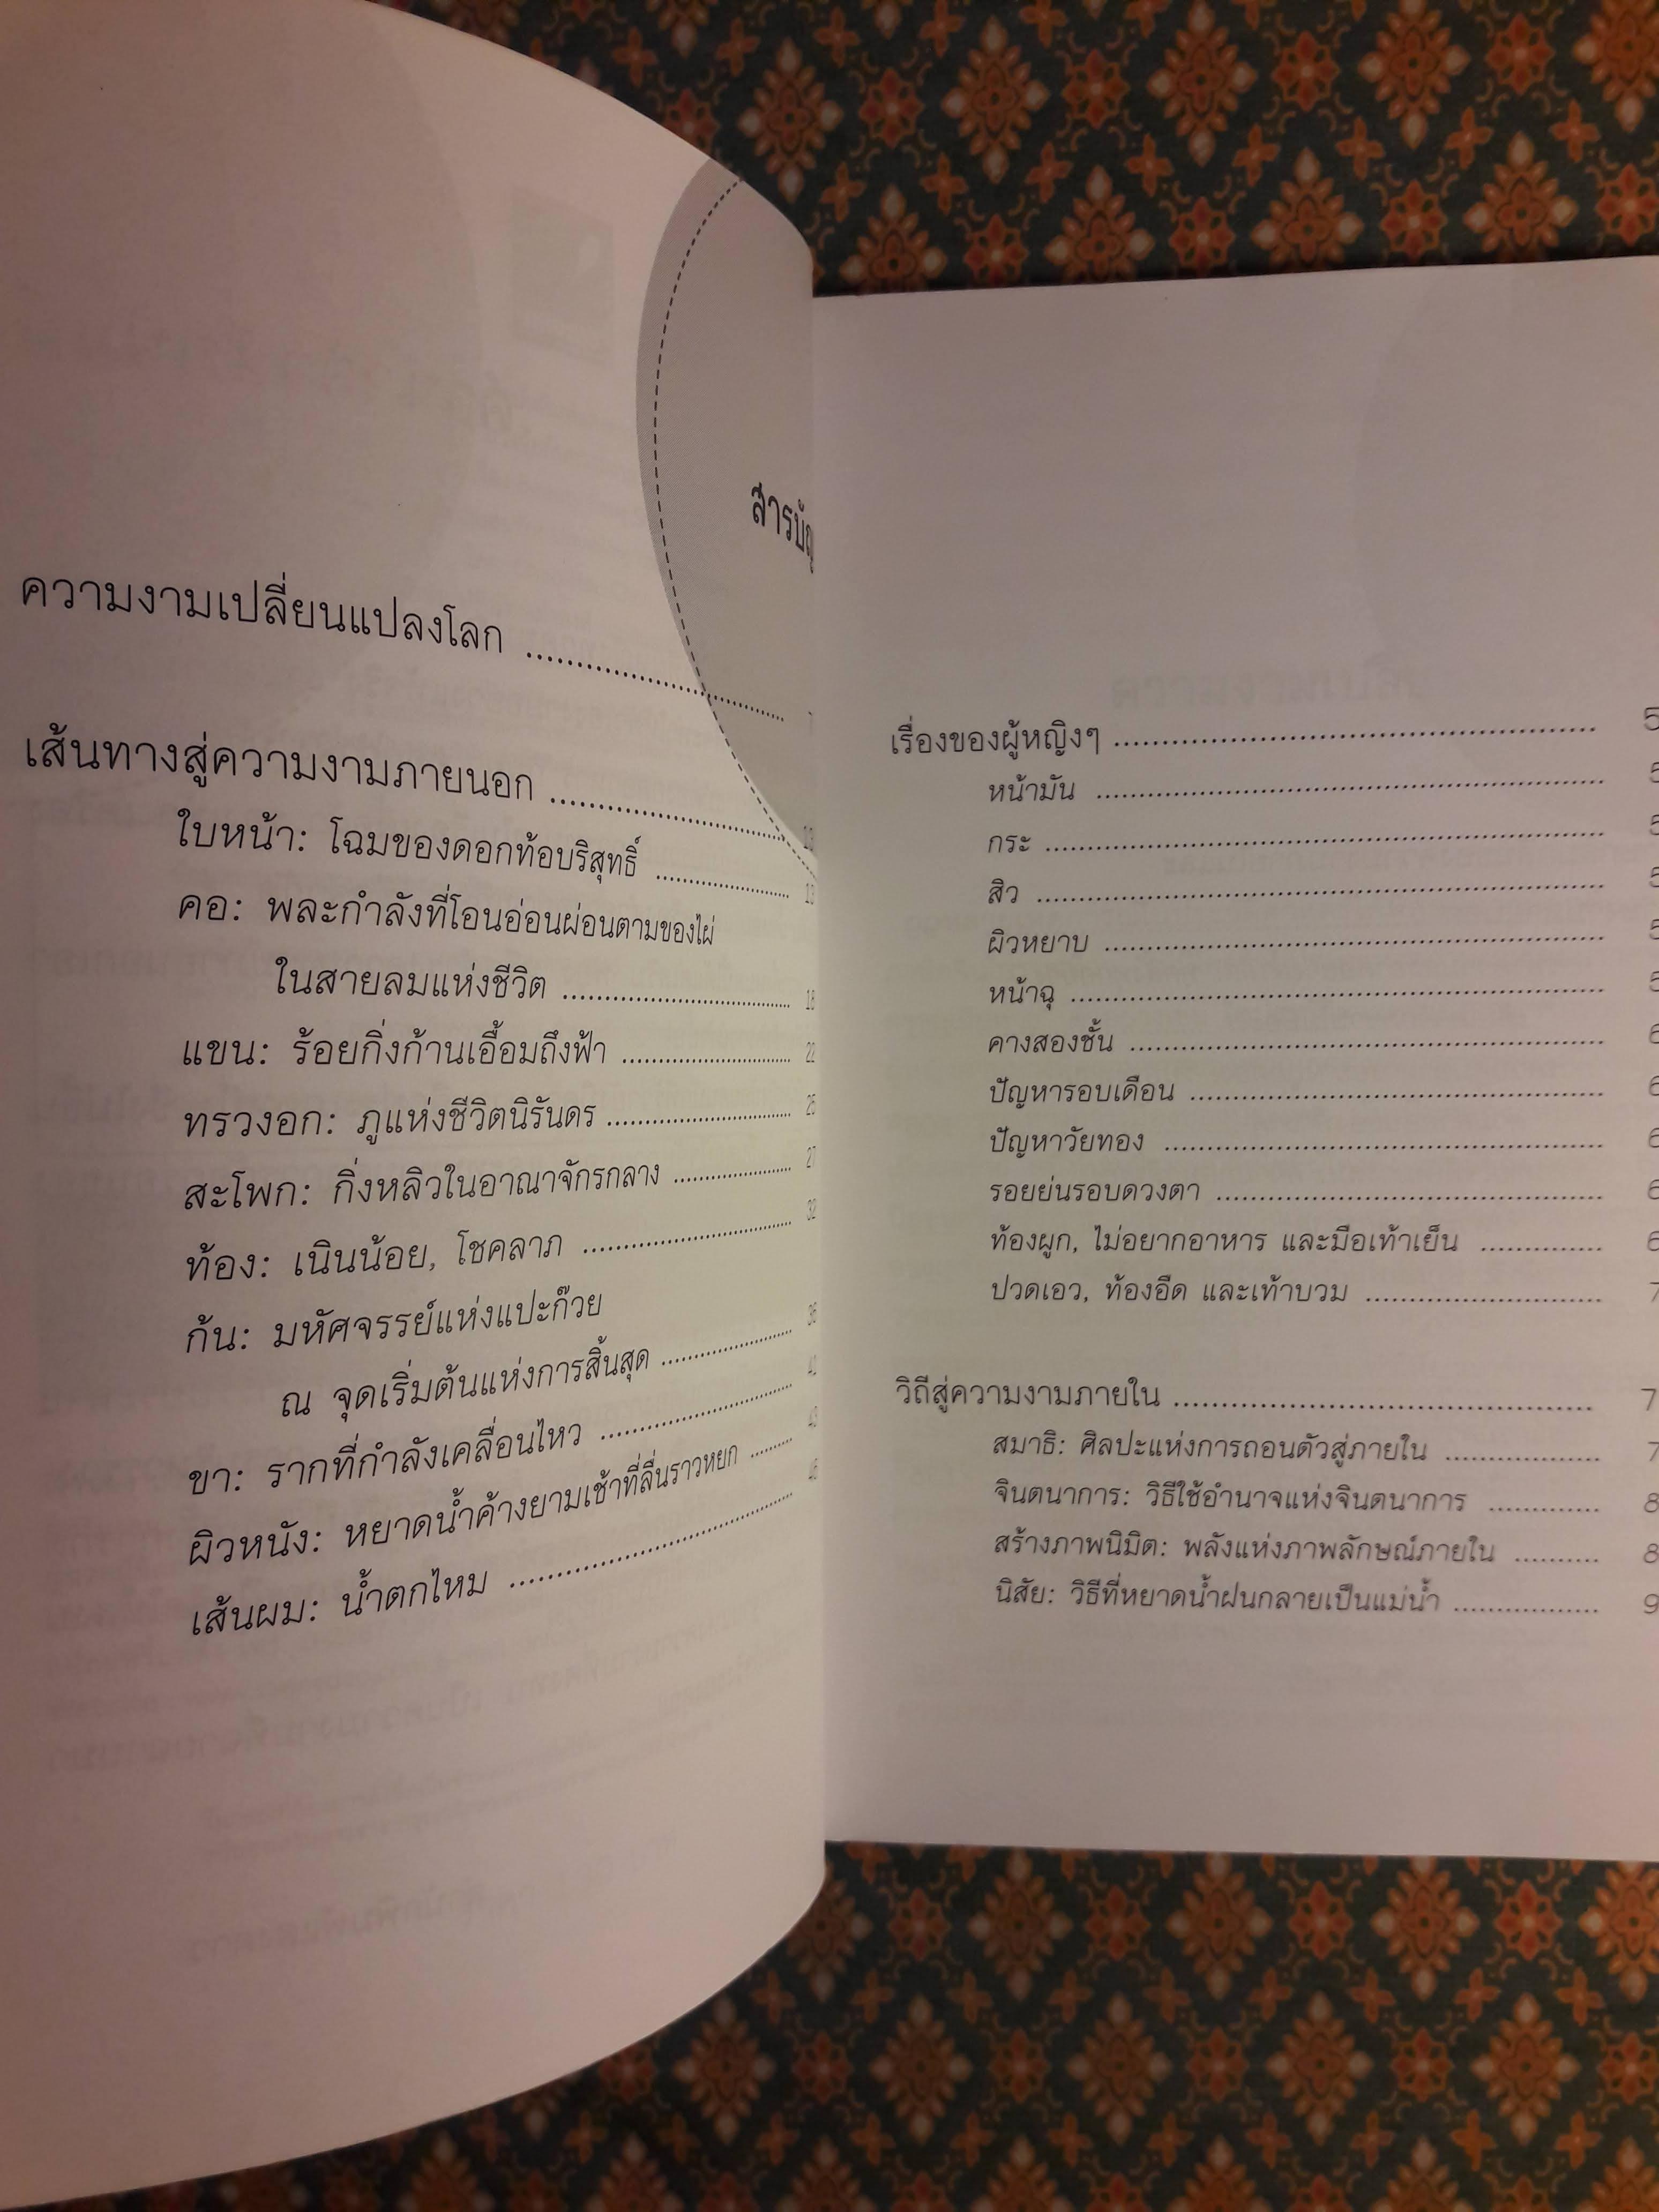 สารบัญ
ความงามเปลี่ยนแปลงโลก ........ 7
เส้นทางสู่ความงามภายนอก ........
ใบหน้า: โฉมของดอกท้อบริสุทธิ์ ........ 13
คอ: พละกำลังที่โอนอ่อนผ่อนตามของไผ่
ในสายลมแห่งชีวิต ........ 18
แขน: ร้อยกิ่งก้านเอื้อมถึงฟ้า ........ 22
ทรวงอก: ภูแห่งชีวิตนิรันดร ........ 25
สะโพก: กิ่งหลิวในอาณาจักรกลาง ........ 27
ท้อง: เนินน้อย, โชคลาภ ........ 32
ก้น: มหัศจรรย์แห่งแปะก๊วย
ณ จุดเริ่มต้นแห่งการสิ้นสุด ........ 36
ขา: รากที่กำลังเคลื่อนไหว ........
ผิวหนัง: หยาดน้ำค้างยามเช้าที่ลื่นราวหยก ........
เส้นผม: น้ำตกไหม ........
เรื่องของผู้หญิงๆ ........ 5
หน้ามัน ........ 5
กระ ........ 5
สิว ........ 5
ผิวหยาบ ........ 5
หน้าฉุ ........ 5
คางสองชั้น ........ 6
ปัญหารอบเดือน ........ 6
ปัญหาวัยทอง ........ 6
รอยย่นรอบดวงตา ........ 6
ท้องผูก, ไม่อยากอาหาร และมือเท้าเย็น ........ 6
ปวดเอว, ท้องอืด และเท้าบวม ........ 7
วิถีสู่ความงามภายใน ........ 7
สมาธิ: ศิลปะแห่งการถอนตัวสู่ภายใน ........ 7
จินตนาการ: วิธีใช้อำนาจแห่งจินตนาการ ........ 8
สร้างภาพนิมิต: พลังแห่งภาพลักษณ์ภายใน ........ 8
นิสัย: วิธีที่หยาดน้ำฝนกลายเป็นแม่น้ำ ........ 9